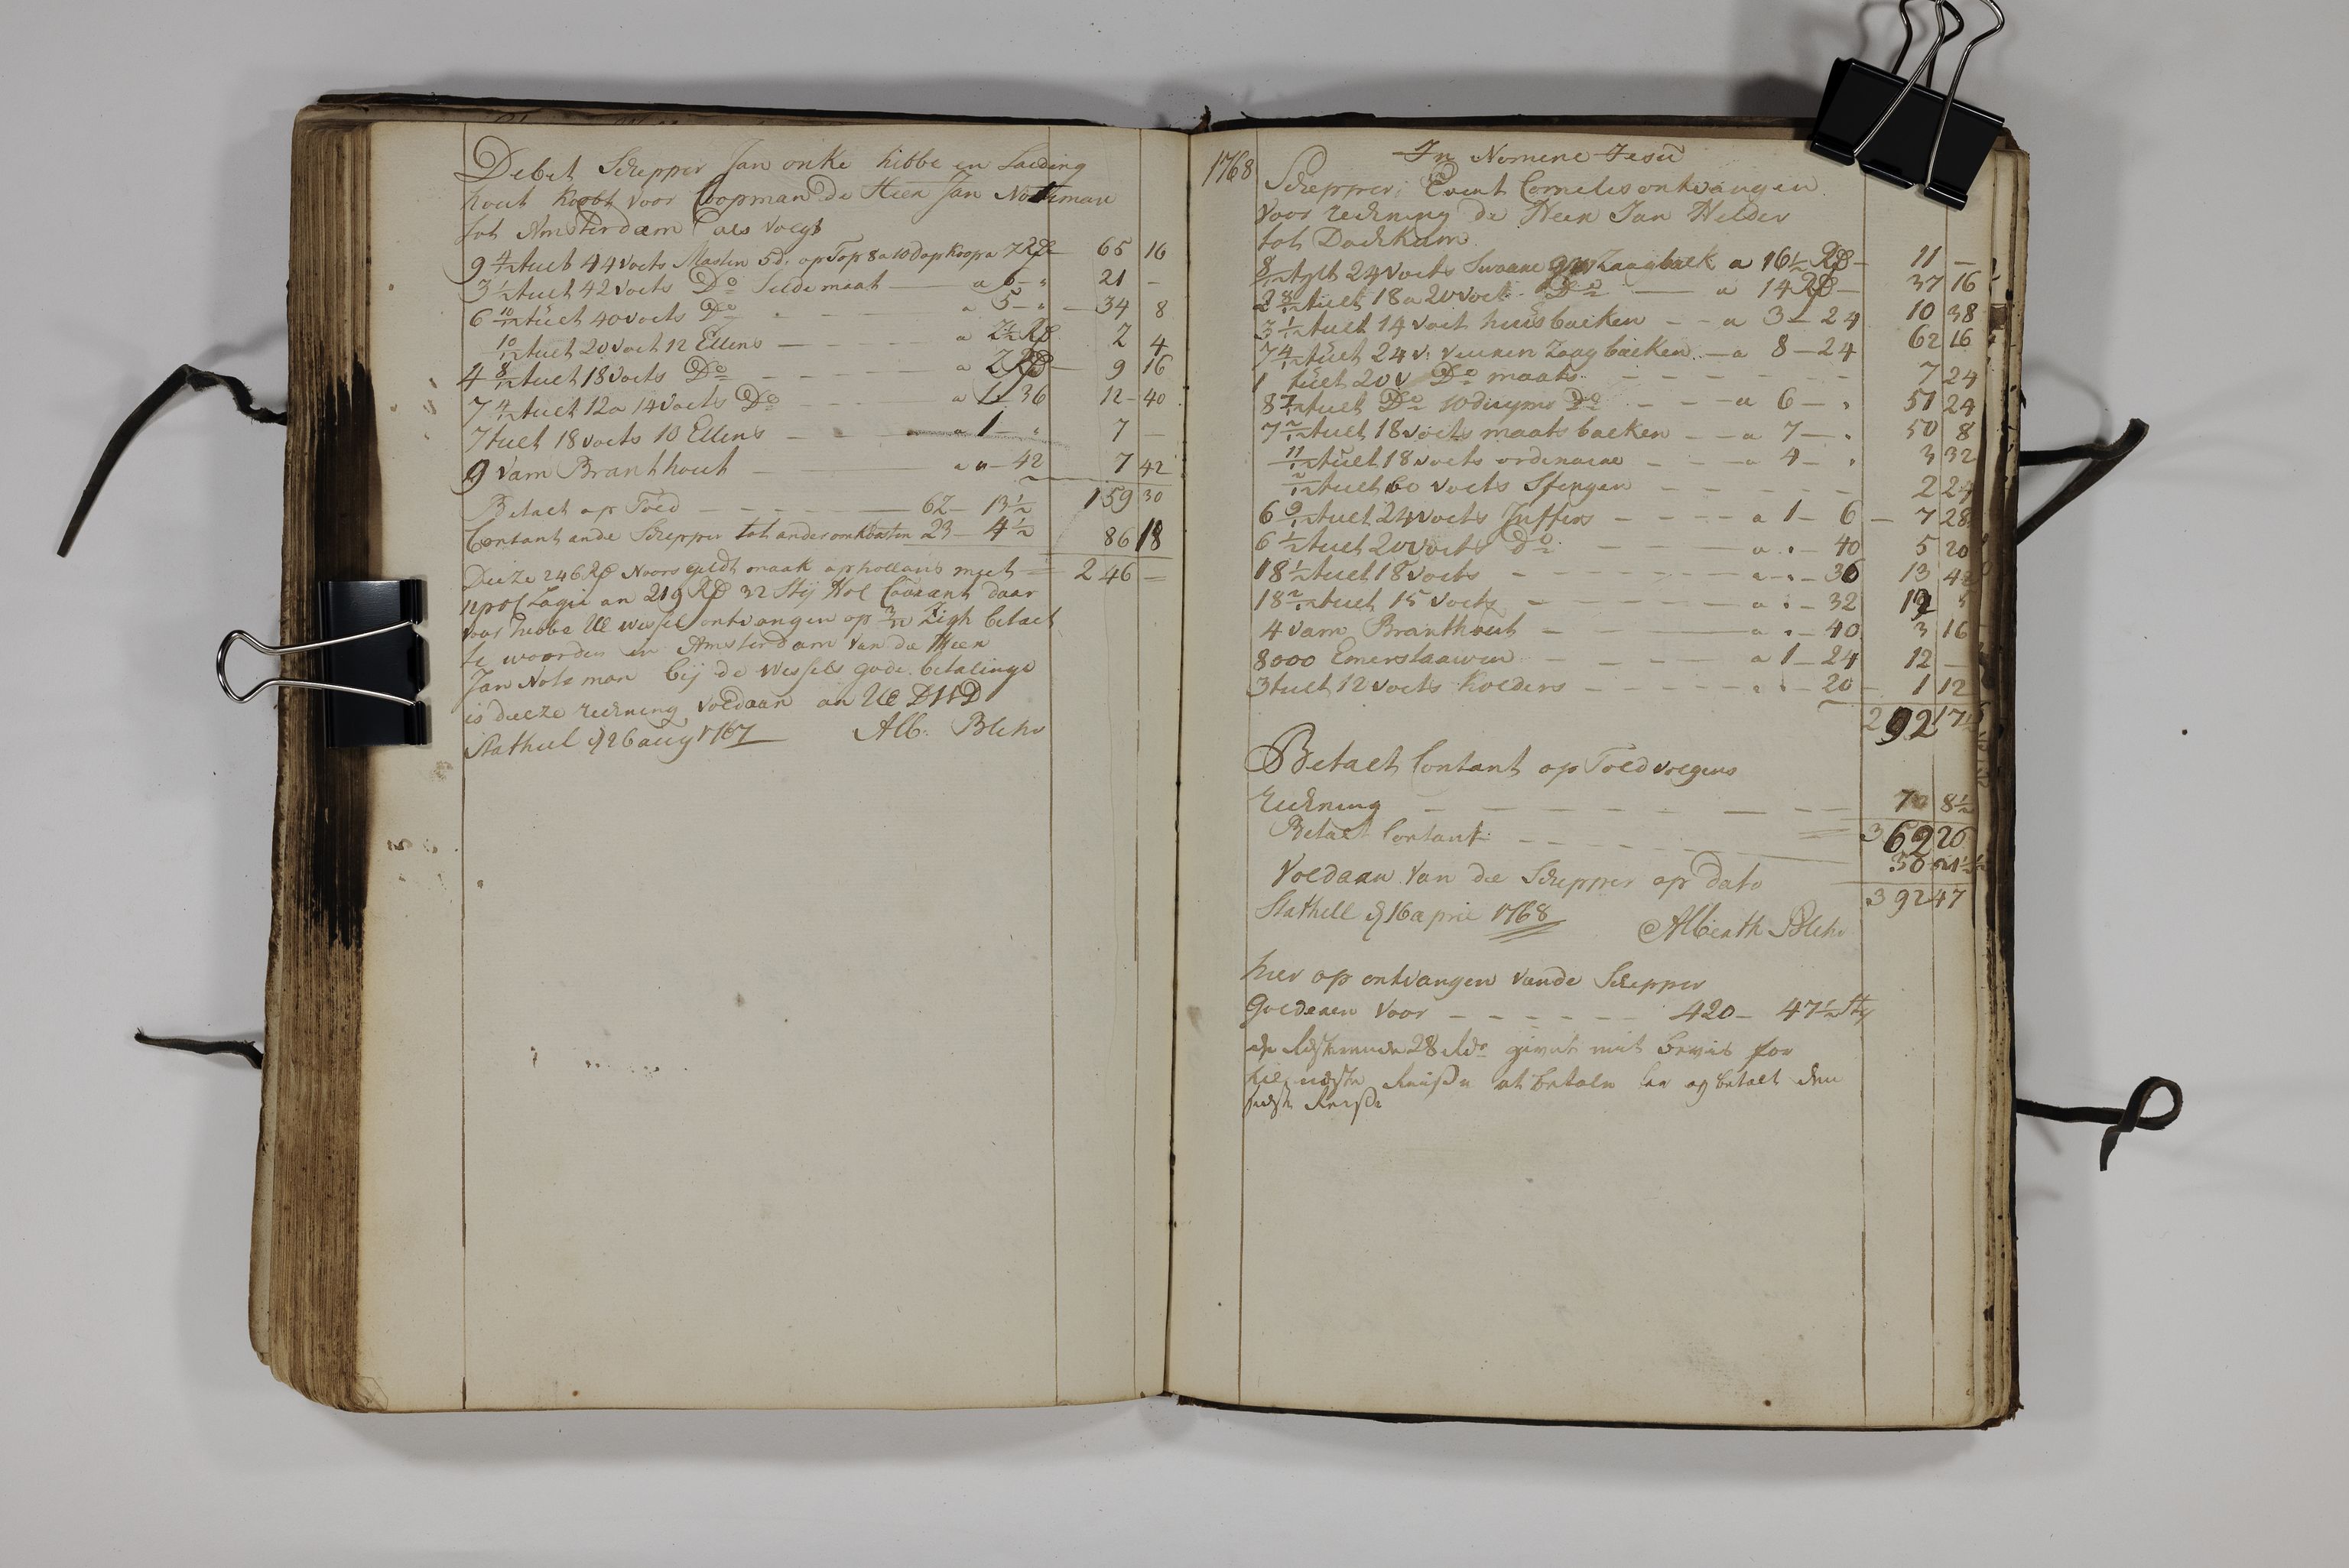 Debet Schipper Jan onke hibbe en Laeding
hout koobt voor Coopman de Heer Jan Noteman
tot Amsterdam als volgt
9 4/12 tuelt 44 voets Masten 5 d. op Top 8 a 10 d op koop a 7 Rd 65 16
3 1/2 tuelt 42 voets Do Selde maat a 6 - " 21 -
6 10/12 tuelt 40 voets Do a 5 - " 34 8
10/12 tuelt 20 voet 12 Ellens a 2 1/2 Rd 2 4
4 8/12 tuelt 18 voets Do a 2 Rd 9 16
7 4/12 tuelt 12 a 14 voets Do a 1 - 36 12 - 40
7 tuelt 18 voets 10 Ellens a 1 - " 7 -
9 vam Branthout a " - 42 7 42
159 30
Betaelt op Told 62 - 13 1/2
Contant ande Schipper tot ander onkosten 23 - 4 1/2 86 18
Deeze 246 Rd Noors geldt maak op hollans met 246 -
Lagie an 219 Rd 32 Stij Hol Courant daar
voor hebbe UE wessel ontvangen op Sigh betaelt
te woorden in Amsterdam van de Heer
Jan Noteman bij de wessels gode betalinge
is deeze reekning voldaan an UE DWD
Stathel d 26 aug 1767 Alb. Blehr
1768
In Nomine Jesu
Schipper Evert Cornelis ontvangen
voor reekning de Heer Jan Helder
tot Dockum
8/12 tylt 24 voets Swaare gr Zaagbalk a 16 1/2 Rd 11 -
2 8/12 tuelt 18 a 20 voet Do a 14 Rd 37 16
3 1/12 tuelt 14 voet huisbalken a 3 - 24 10 38
7 4/12 tuelt 24 v. vuuren Zaag balken a 8 - 24 62 16
1 tuelt 20 v Do maats 7 24
8 7/12 tuelt Do 10 duyms Do a 6 - " 51 24
7 2/12 tuelt 18 voets maats balken a 7 - " 50 8
11/12 tuelt 18 voets ordinaire a 4 - " 3 32
2/12 tuelt 60 voets Spengen 2 24
6 9/12 tuelt 24 voets Juffers a 1 - 6 7 28
6 1/2 tuelt 20 voets Do a " - 40 5 20
18 1/2 tuelt 18 voets a " - 36 13 42
18 2/12 tuelt 15 voets a " - 32 12 5
4 vam Branthout a " - 40 3 16
8000 Emerstaawen a 1 - 24 12 -
3 tuelt 12 voets Kolders a " - 20 1 12
292 17 1/2
Betaelt Contant op Told volgens
reekning 70 8 1/2
Betaelt Contant 362 26
30 21 1/2
Voldaan van de Schipper op dato
392 47
Stathell d 16 april 1768
Albreth Blehr
hier op ontvangen vande Schipper
Goederen voor 420 - 47 1/2 Sty
de Resterende 28 Rdr givet mit bevis for
til neste Reise at betale har og betalt den
neste Reise